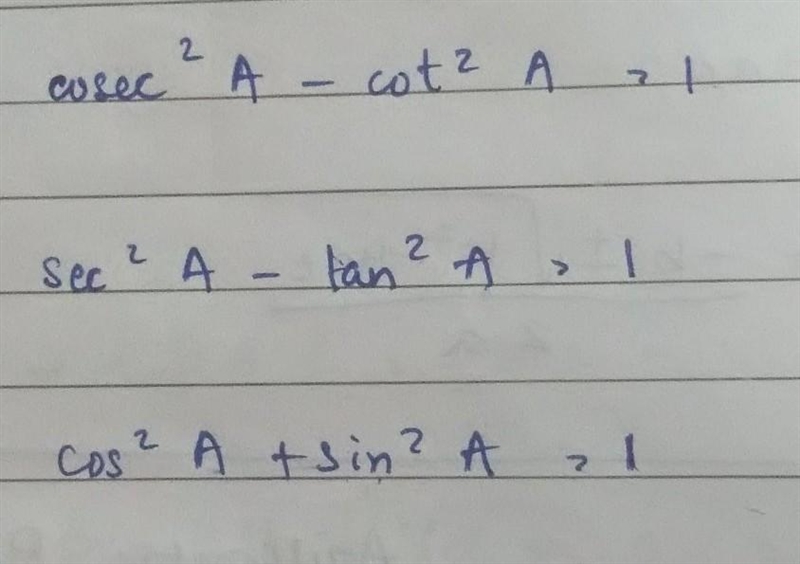 cosec² A − cot² A = 1
sec² A − tan² A = 1
cos² A + sin² A = 1